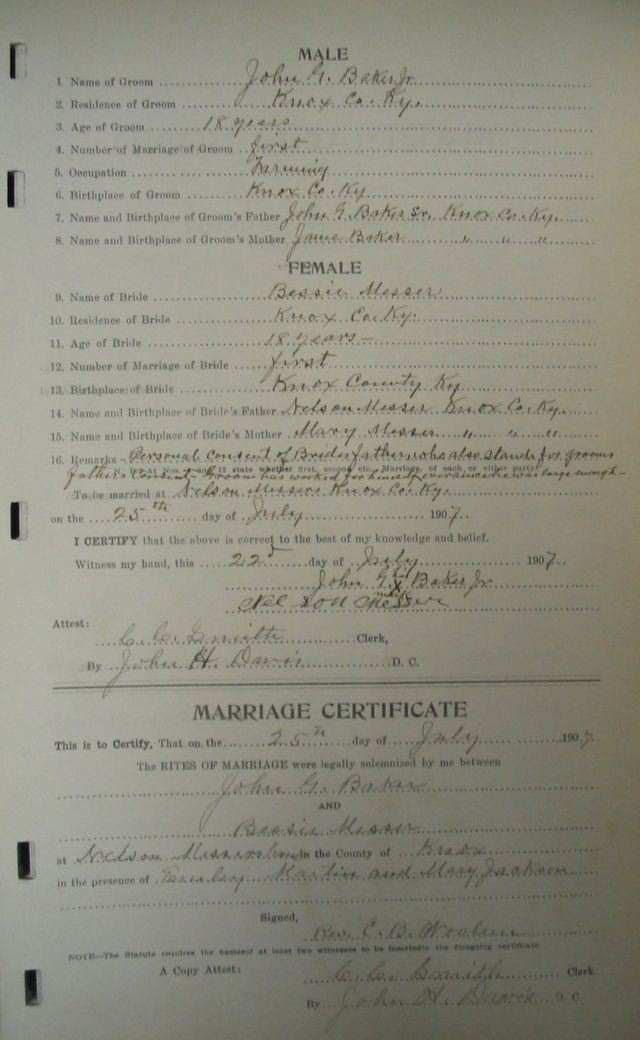 MALE
1. Name of Groom John G. Baker Jr
2. Residence of Groom Knox Co. Ky.
3. Age of Groom 18 years
4. Number of Marriage of Groom first
5. Occupation Farming
6. Birthplace of Groom Knox Co. Ky
7. Name and Birthplace of Groom's Father John G. Baker Sr. Knox Co. Ky.
8. Name and Birthplace of Groom's Mother Jane Baker " " "
FEMALE
9. Name of Bride Bessie Messer
10. Residence of Bride Knox Co. Ky.
11. Age of Bride 18 years —
12. Number of Marriage of Bride first
13. Birthplace of Bride Knox County Ky
14. Name and Birthplace of Bride's Father Nelson Messer Knox Co. Ky.
15. Name and Birthplace of Bride's Mother Mary Messer " " "
16. Remarks - Personal Consent of Brides father who also stands for grooms
father's consent - Groom has worked for himself ever since he was large enough -
and 12 state whether first, second etc. Marriage, of each or either party
To be married at Nelson Messers Knox Co. Ky.
on the 25th day of July 1907.
I CERTIFY that the above is correct to the best of my knowledge and belief.
Witness my hand, this 22d day of July 1907.
John G. x Baker Jr
Nelson Messer
Attest:
C. C. Smith Clerk,
By John H. Davis D. C.
MARRIAGE CERTIFICATE
This is to Certify, That on the 25th day of July 1907
The RITES OF MARRIAGE were legally solemnized by me between
John G. Baker
AND
Bessie Messer
at Nelson Messers in the County of Knox
in the presence of Martin and Mary Jackson
Signed,
Rev. C. B.
NOTE—The Statute requires the names of at least two witnesses to be inserted in the foregoing certificate
A Copy Attest: C. C. Smith Clerk
By John H. Davis D. C.